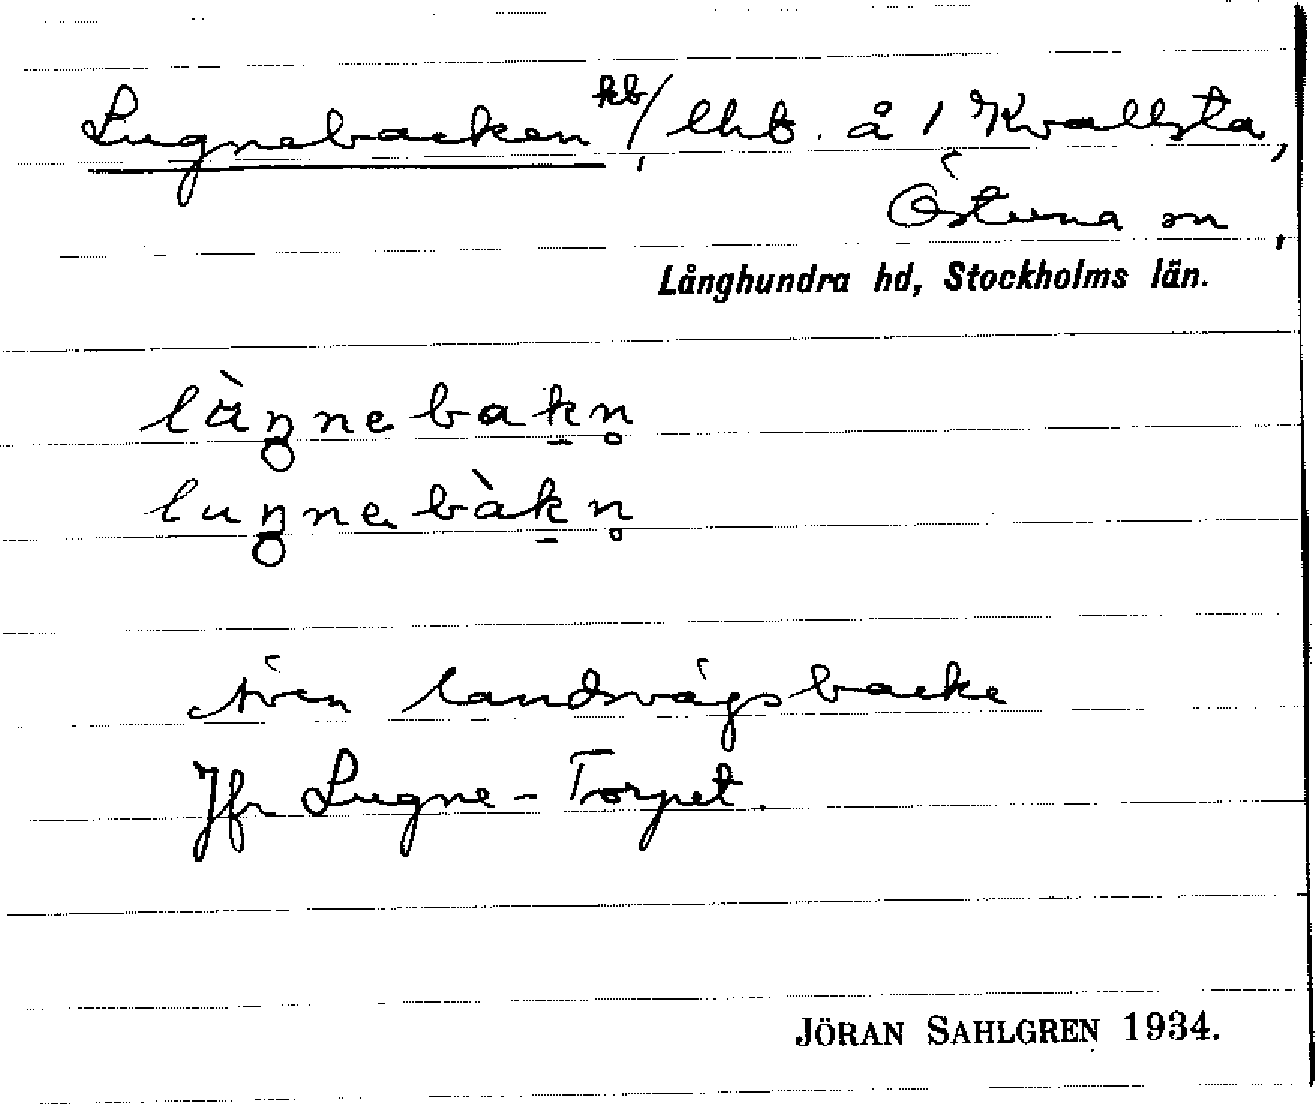 Lugnebacken kb/, lht. å 1 Kvallsta,
Östuna sn,
Långhundra hd, Stockholms län.
lùŋnebakn̥
luŋnebàkn̥
även landsvägsbacke
Jfr Lugne-Torpet.
JÖRAN SAHLGREN 1934.